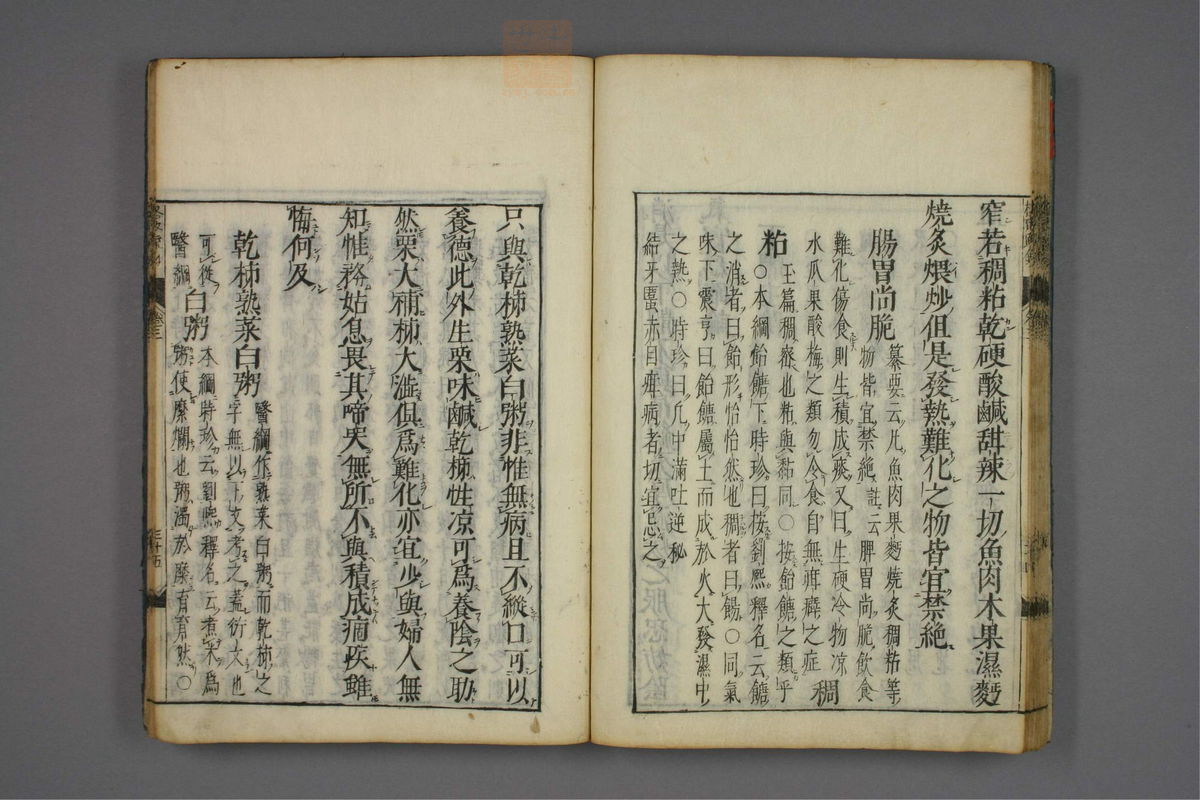 窄若稠粘乾硬酸鹹甜辣一切魚肉木果濕麪
燒炙煨炒但是發熱難化之物皆宜禁絶
腸胃尚脆
纂要云凡魚肉果麪燒炙稠粘等
物皆宜禁絶註云脾胃尚脆飲食
難化傷食則生積成疾又曰生硬冷物凉
水瓜果酸梅之類勿冷食自無疳癖之症
稠
粘
玉篇稠密也粘與黏同○按飴餹之類乎
○本綱飴餹下時珍曰按劉熙釋名云餹
之消者曰飴形怡怡然也稠者曰餳○同氣
味下震亨曰飴餹屬土而成於火大發濕中
之熱○時珍曰凡中滿吐逆秘
結牙䘌赤目疳病者切宜忌之
只與乾柿熟菜白粥非惟無病且不縱口可以
養德此外生栗味鹹乾柿性凉可爲養陰之助
然栗大補柿大澁倶爲難化亦宜少與婦人無
知惟務姑息畏其啼哭無所不與積成痼疾雖
悔何及
乾柿熟菜白粥
醫綱作熟菜白粥而乾柿之
字無以下文考之蓋衍文也
可從
醫綱
白粥
本綱時珍云劉熙釋名云煮米爲
粥使糜爛也粥濁於糜育育然○
卷三
三十五